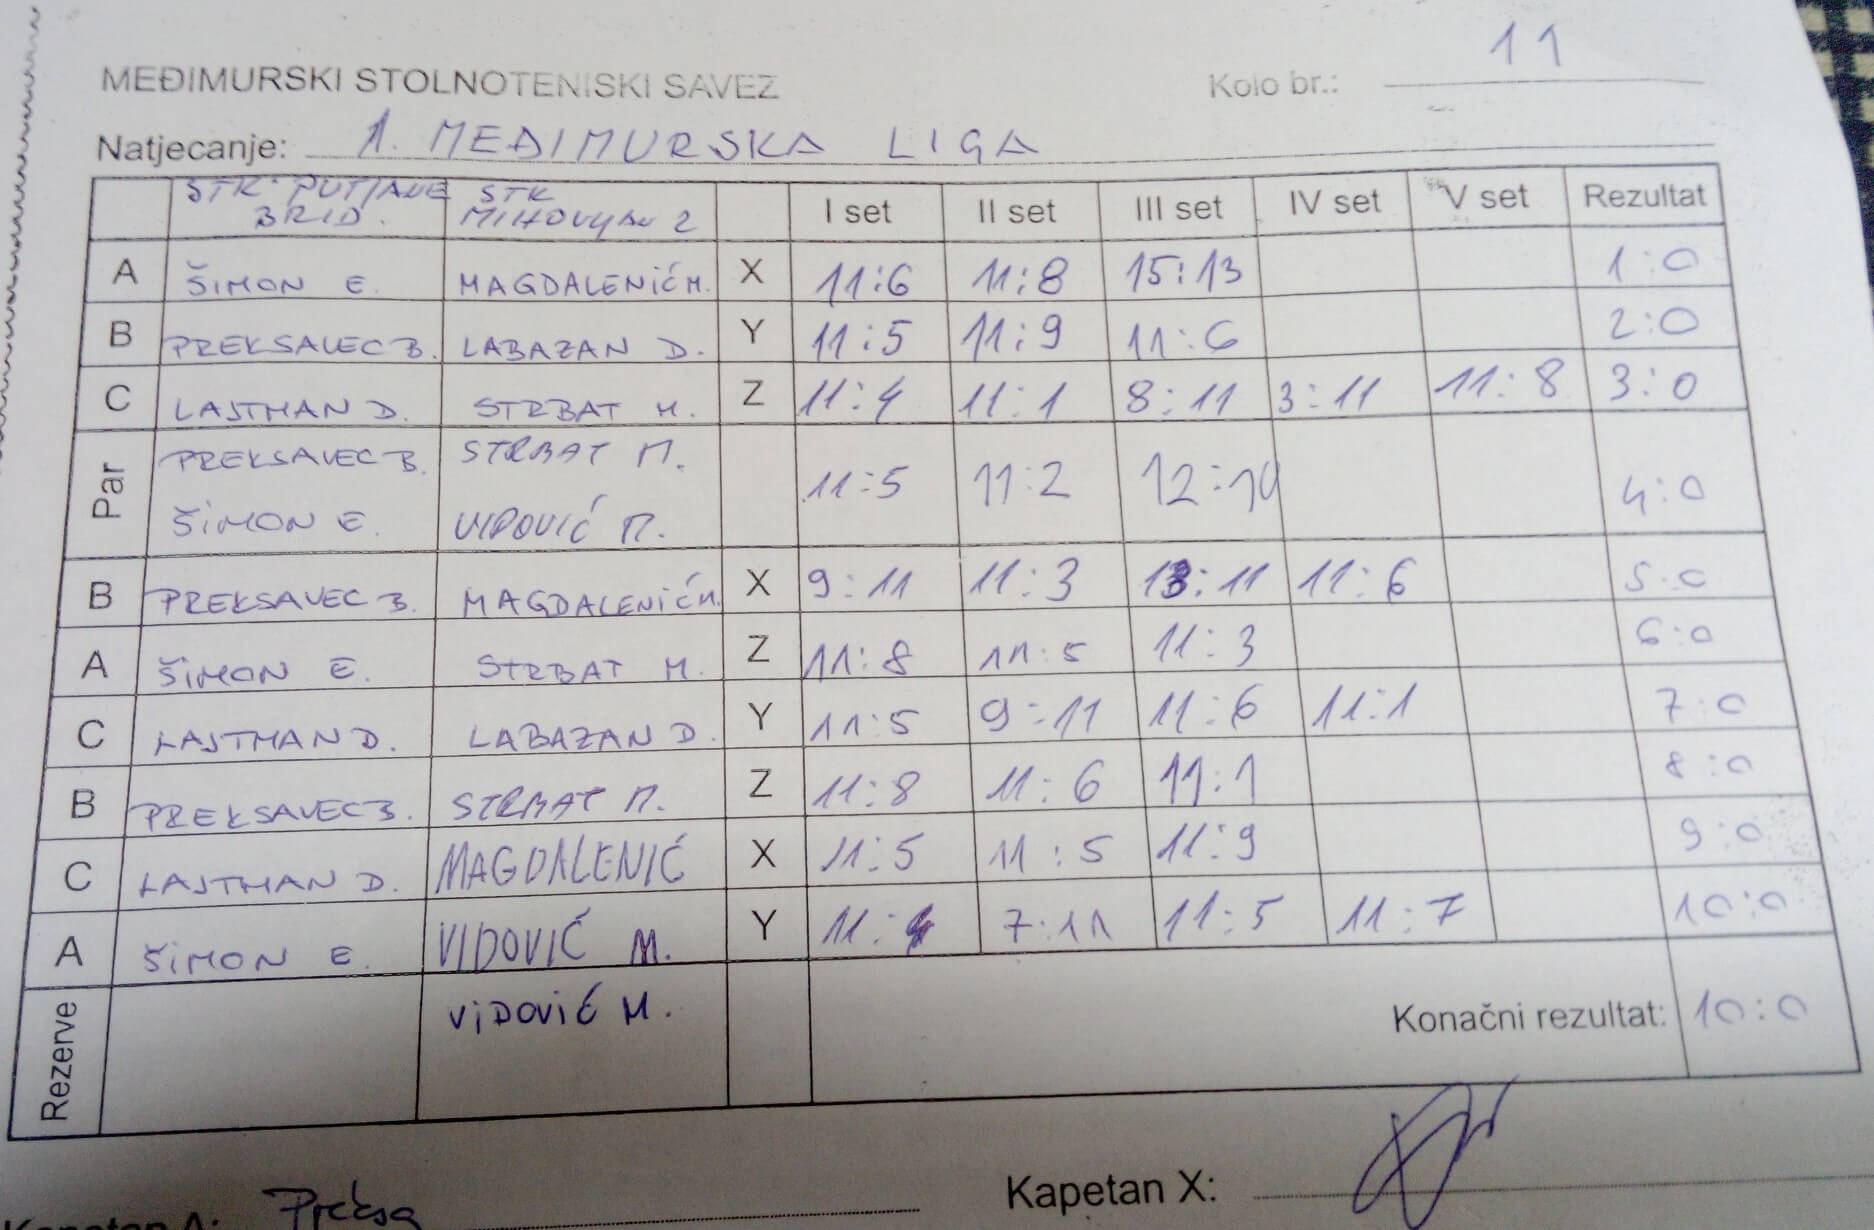 Kolo br.: 11
MEĐIMURSKI STOLNOTENISKI SAVEZ
Natjecanje: 1. MEĐIMURSKA LIGA
STK PUTJANE BRID. STK MIHOVLJAN 2 I set II set III set IV set V set Rezultat
A ŠIMON E. MAGDALENIĆ M. X 11:6 11:8 15:13 1:0
B PREKSAVEC B. LABAZAN D. Y 11:5 11:9 11:6 2:0
C LAJTMAN D. STRBAT M. Z 11:4 11:1 8:11 3:11 11:8 3:0
Par PREKSAVEC B. STRBAT M. 11:5 11:2 12:10 4:0
ŠIMON E. VIDOVIĆ M.
B PREKSAVEC B. MAGDALENIĆ M. X 9:11 11:3 13:11 11:6 5:0
A ŠIMON E. STRBAT M. Z 11:8 11:5 11:3 6:0
C LAJTMAN D. LABAZAN D. Y 11:5 9:11 11:6 11:1 7:0
B PREKSAVEC B. STRBAT M. Z 11:8 11:6 11:1 8:0
C LAJTMAN D. MAGDALENIĆ X 11:5 11:5 11:9 9:0
A ŠIMON E. VIDOVIĆ M. Y 11:4 7:11 11:5 11:7 10:0
Rezerve VIDOVIĆ M. Konačni rezultat: 10:0
Kapetan A: Preksa Kapetan X: